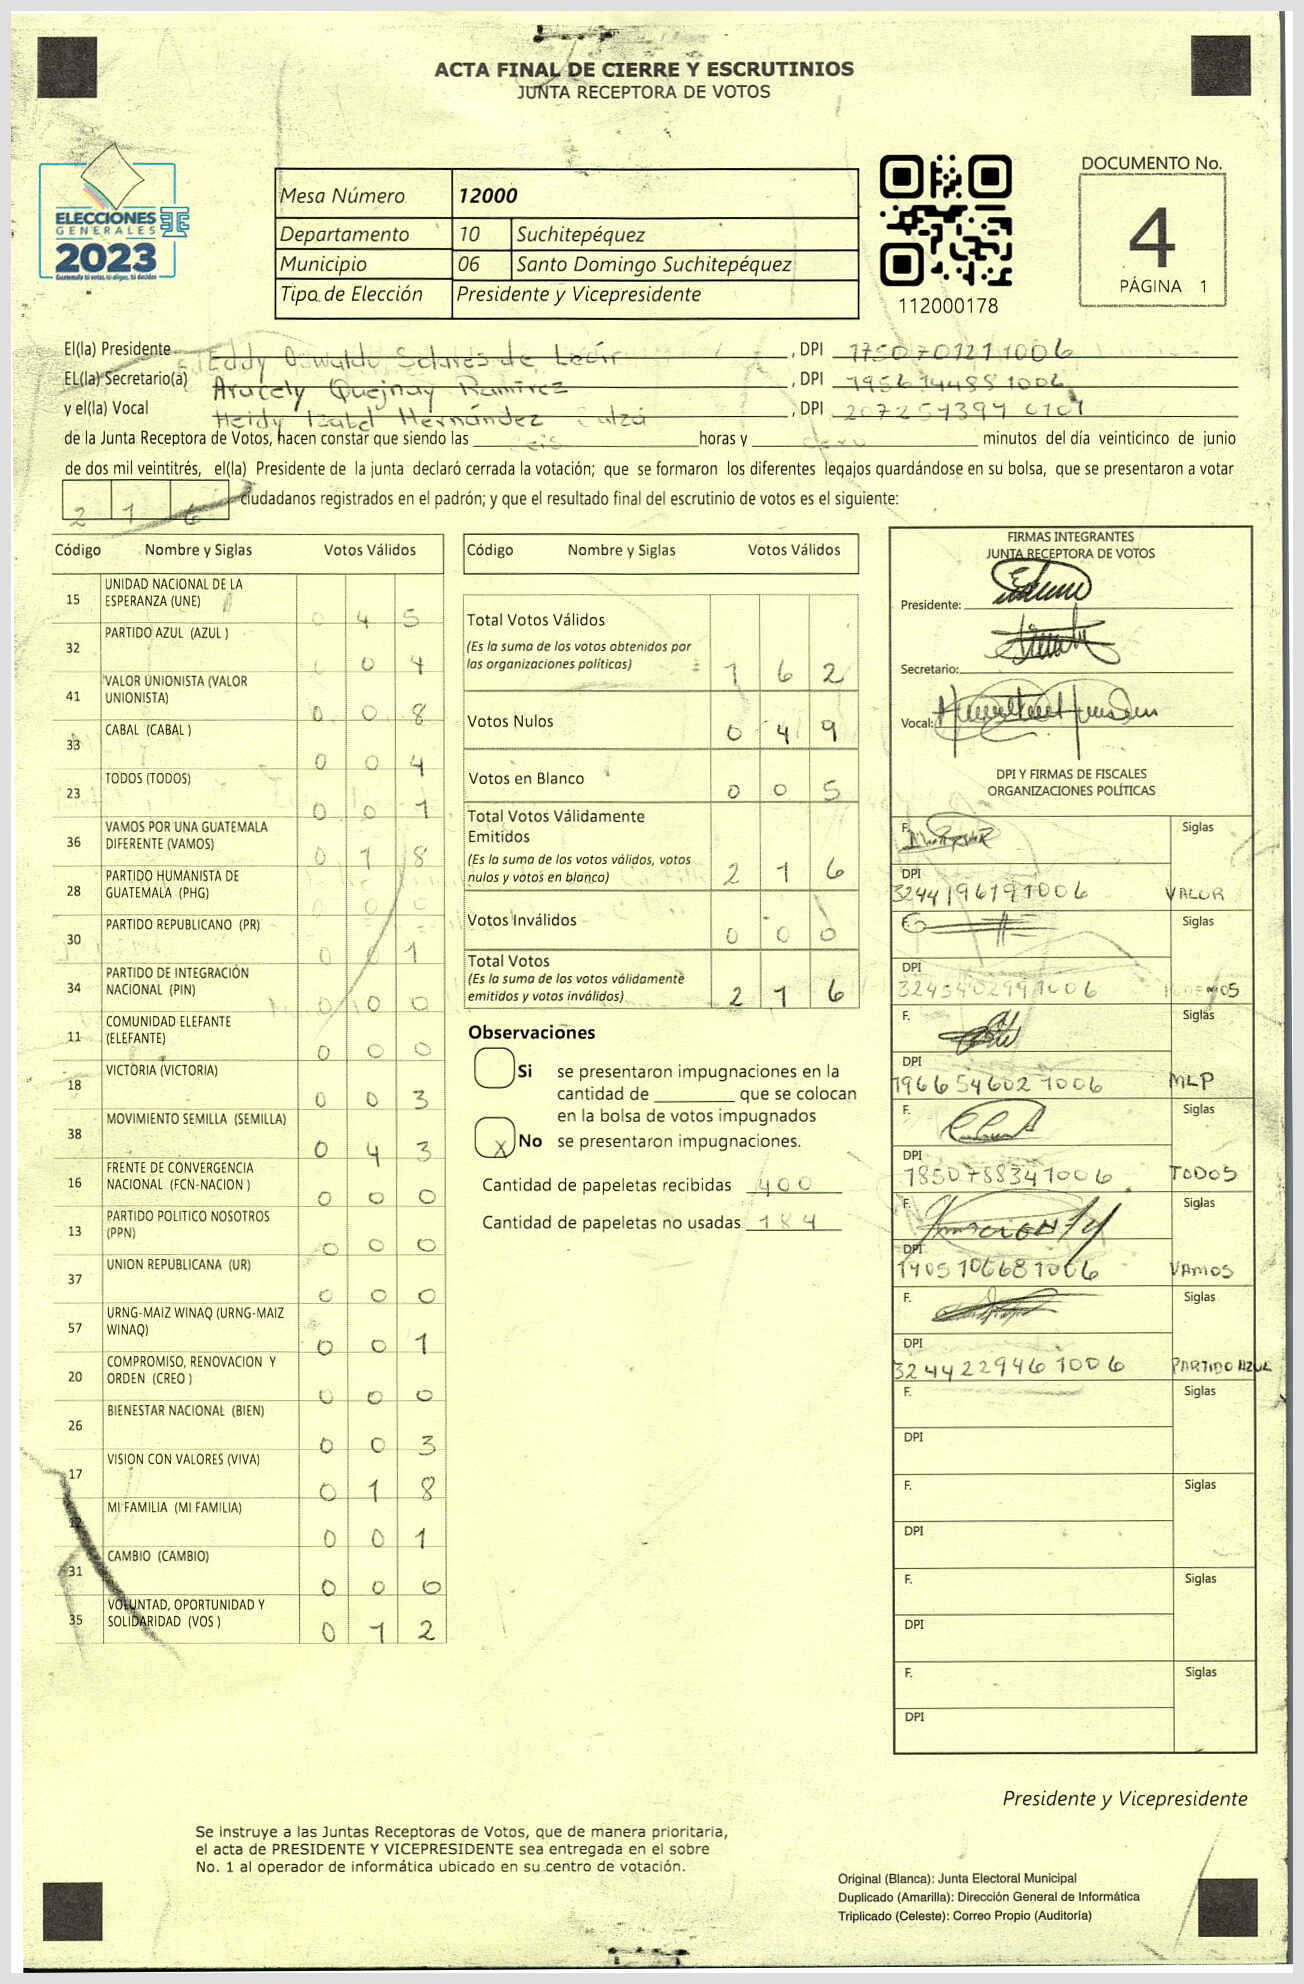 ACTA FINAL DE CIERRE Y ESCRUTINIOS
JUNTA RECEPTORA DE VOTOS
ELECCIONES
GENERALES
2023
Guatemala tú votas, tú eliges, tú decides
Mesa Número 12000
Departamento 10 Suchitepéquez
Municipio 06 Santo Domingo Suchitepéquez
Tipo de Elección Presidente y Vicepresidente
112000178
DOCUMENTO No.
4
PÁGINA 1
El(la) Presidente Eddy Oswaldo Solares de León, DPI 1750701211006
EL(la) Secretario(a) Aracely Quejnay Ramírez, DPI 1956144881006
y el(la) Vocal Heidy Izabel Hernández, DPI
de la Junta Receptora de Votos, hacen constar que siendo las seis horas y cero minutos del día veinticinco de junio
de dos mil veintitrés, el(la) Presidente de la junta declaró cerrada la votación; que se formaron los diferentes legajos guardándose en su bolsa, que se presentaron a votar
216 ciudadanos registrados en el padrón; y que el resultado final del escrutinio de votos es el siguiente:
Código Nombre y Siglas Votos Válidos
15 UNIDAD NACIONAL DE LA ESPERANZA (UNE) 0 4 5
32 PARTIDO AZUL (AZUL ) 0 0 4
41 VALOR UNIONISTA (VALOR UNIONISTA) 0 0 8
33 CABAL (CABAL ) 0 0 4
23 TODOS (TODOS) 0 0 1
36 VAMOS POR UNA GUATEMALA DIFERENTE (VAMOS) 0 1 8
28 PARTIDO HUMANISTA DE GUATEMALA (PHG) 0 0 0
30 PARTIDO REPUBLICANO (PR) 0 0 1
34 PARTIDO DE INTEGRACIÓN NACIONAL (PIN) 0 0 0
11 COMUNIDAD ELEFANTE (ELEFANTE) 0 0 0
18 VICTORIA (VICTORIA) 0 0 3
38 MOVIMIENTO SEMILLA (SEMILLA) 0 4 3
16 FRENTE DE CONVERGENCIA NACIONAL (FCN-NACION ) 0 0 0
13 PARTIDO POLITICO NOSOTROS (PPN) 0 0 0
37 UNION REPUBLICANA (UR) 0 0 0
57 URNG-MAIZ WINAQ (URNG-MAIZ WINAQ) 0 0 1
20 COMPROMISO, RENOVACION Y ORDEN (CREO ) 0 0 0
26 BIENESTAR NACIONAL (BIEN) 0 0 3
17 VISION CON VALORES (VIVA) 0 1 8
12 MI FAMILIA (MI FAMILIA) 0 0 1
31 CAMBIO (CAMBIO) 0 0 0
35 VOLUNTAD, OPORTUNIDAD Y SOLIDARIDAD (VOS ) 0 1 2
Código Nombre y Siglas Votos Válidos
Total Votos Válidos
(Es la suma de los votos obtenidos por
las organizaciones políticas) 1 6 2
Votos Nulos 0 4 9
Votos en Blanco 0 0 5
Total Votos Válidamente
Emitidos
(Es la suma de los votos válidos, votos
nulos y votos en blanco) 2 1 6
Votos Inválidos 0 0 0
Total Votos
(Es la suma de los votos válidamente
emitidos y votos inválidos) 2 1 6
Observaciones
Si se presentaron impugnaciones en la
cantidad de ________ que se colocan
en la bolsa de votos impugnados
X No se presentaron impugnaciones.
Cantidad de papeletas recibidas 400
Cantidad de papeletas no usadas 184
FIRMAS INTEGRANTES
JUNTA RECEPTORA DE VOTOS
Presidente:
Secretario:
Vocal:
DPI Y FIRMAS DE FISCALES
ORGANIZACIONES POLÍTICAS
F. Siglas
DPI
3244196191006 VALOR
F. Siglas
DPI
3245402991006
F. Siglas
DPI
1966546021006 MLP
F. Siglas
DPI
1850788341006 TODOS
F. Siglas
DPI
1405106681006 VAMOS
F. Siglas
DPI
3244229461006 PARTIDO AZUL
F. Siglas
DPI
F. Siglas
DPI
F. Siglas
DPI
F. Siglas
DPI
Presidente y Vicepresidente
Se instruye a las Juntas Receptoras de Votos, que de manera prioritaria,
el acta de PRESIDENTE Y VICEPRESIDENTE sea entregada en el sobre
No. 1 al operador de informática ubicado en su centro de votación.
Original (Blanca): Junta Electoral Municipal
Duplicado (Amarilla): Dirección General de Informática
Triplicado (Celeste): Correo Propio (Auditoría)